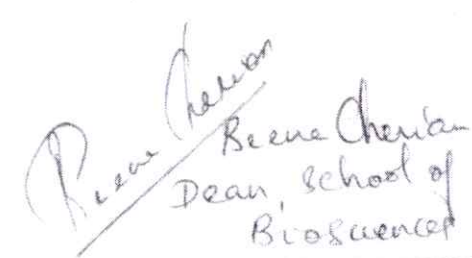 Reena Cherian
Reena Cherian
Dean, School of
Biosciences